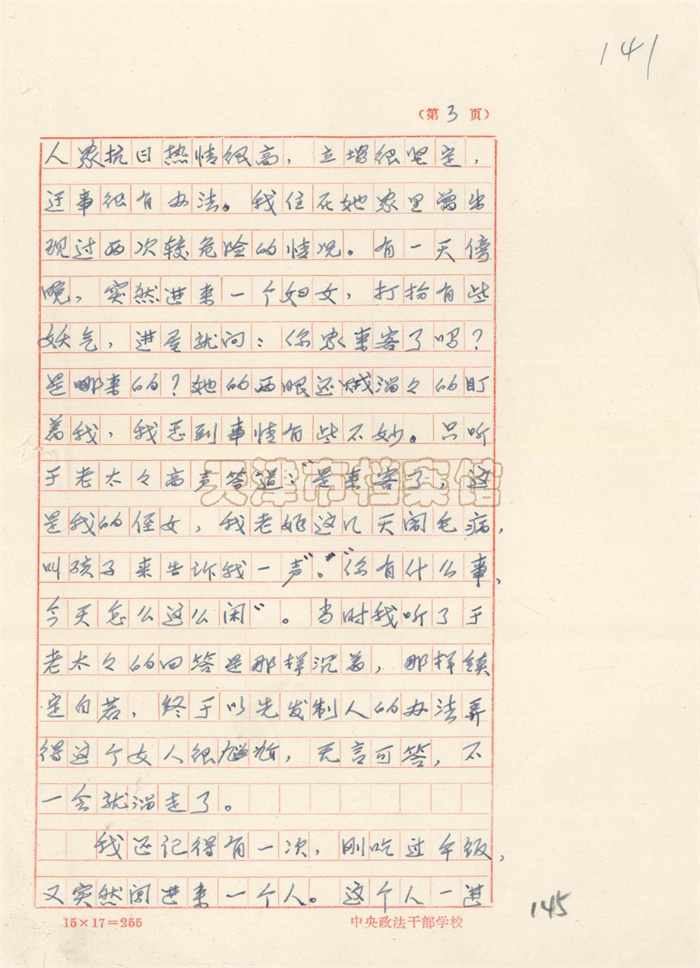 141
（第 3 页）
人家抗日热情很高，立场很坚定，
遇事很有办法。我住在她家里曾出
现过两次较危险的情况。有一天傍
晚，突然进来一个妇女，打扮有些
妖气，进屋就问：你家来客了吗？
是哪来的？她的两眼还贼溜々的盯
着我，我感到事情有些不妙。只听
于老太々高声答道：“是来客了，这
是我的侄女，我老姐这几天闹毛病，
叫孩子来告诉我一声”。“你有什么事、
今天怎么这么闲”。当时我听了于
老太々的回答是那样沉着，那样镇
定自若，终于以先发制人的办法弄
得这个女人很尴尬，无言可答，不
一会就溜走了。
我还记得有一次，刚吃过午饭，
又突然闯进来一个人。这个人一进
15×17=255
中央政法干部学校
145
天津市档案馆